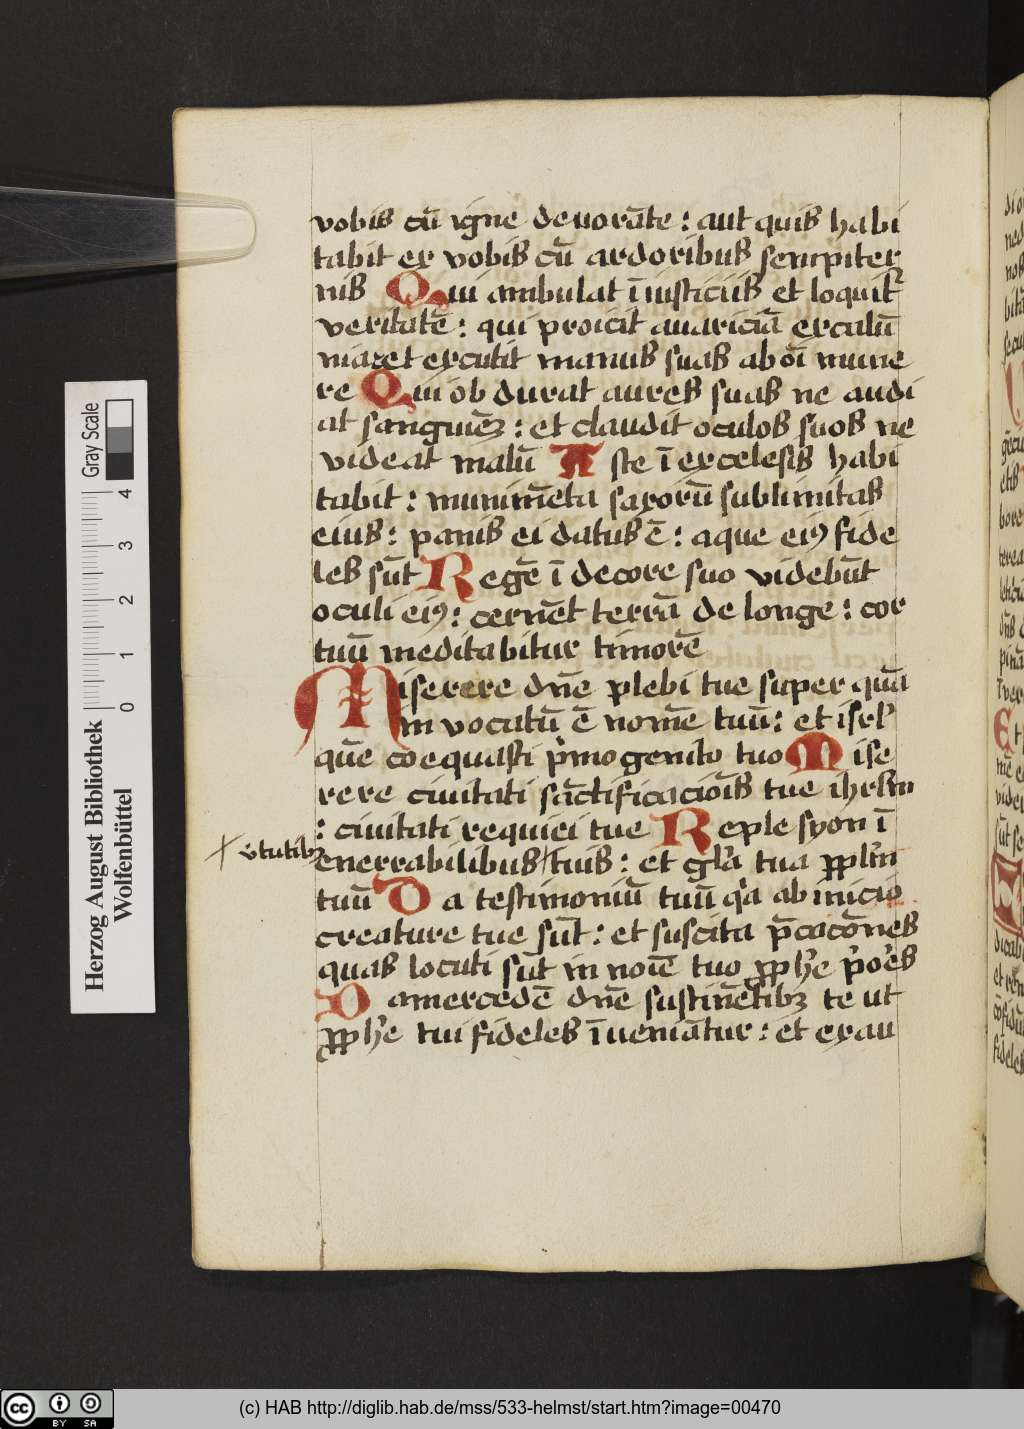 vobis cū igne deuorāte : aut quis habi
tabit ex vobis cū ardoribus sempiter
nis Qui ambulat ī iusticiis et loquit᷑
veritatē : qui proicit auariciā ex calū
nia et excutit manus suas ab oī mune
re Qui obdurat aures suas ne audi
at sanguinē : et claudit oculos suos ne
videat malū Iste ī excelesis habi
tabit : munimēta saxorū sublimitas
eius : panis ei datus ē : aque eiꝰ fide
les sūt Regē ī decore suo videbūt
oculi eiꝰ : cernēt terrā de longe : cor
tuū meditabitur timorē
Miserere dn̄e plebi tue super quā
invocatū ē nomē tuū : et isrl̕
quē coequasti p̕mogenito tuo Mise
rere ciuitati sāctificaciōis tue ihrl̄m
: ciuitati requiei tue Reple syon ī
v̕tutibꝫ
enerrabilibus tuis : et gl̕a tua ppl̄m
tuū Da testimoniū tuū q̕a ab inicio
creature tue sūt : et suscita p̄cacōnes
quas locuti sūt in noīe tuo ꝓph̕e p̕o̕es
Da mercedē dn̄e sustinētibꝫ te ut
ꝓph̕e tui fideles īueniātur : et exau
Herzog August Bibliothek
Wolfenbüttel
Gray Scale
0 1 2 3 4
cc BY SA
(c) HAB http://diglib.hab.de/mss/533-helmst/start.htm?image=00470